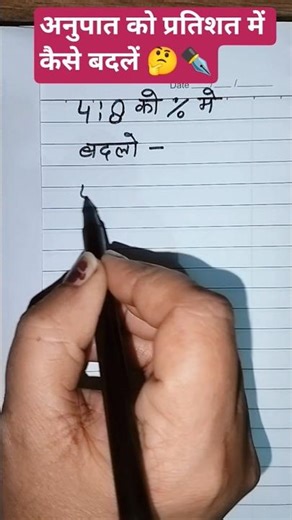 अनुपात को प्रतिशत में
कैसे बदलें 🤔✒️
Date / /
4:8 को % मे
बदलो -